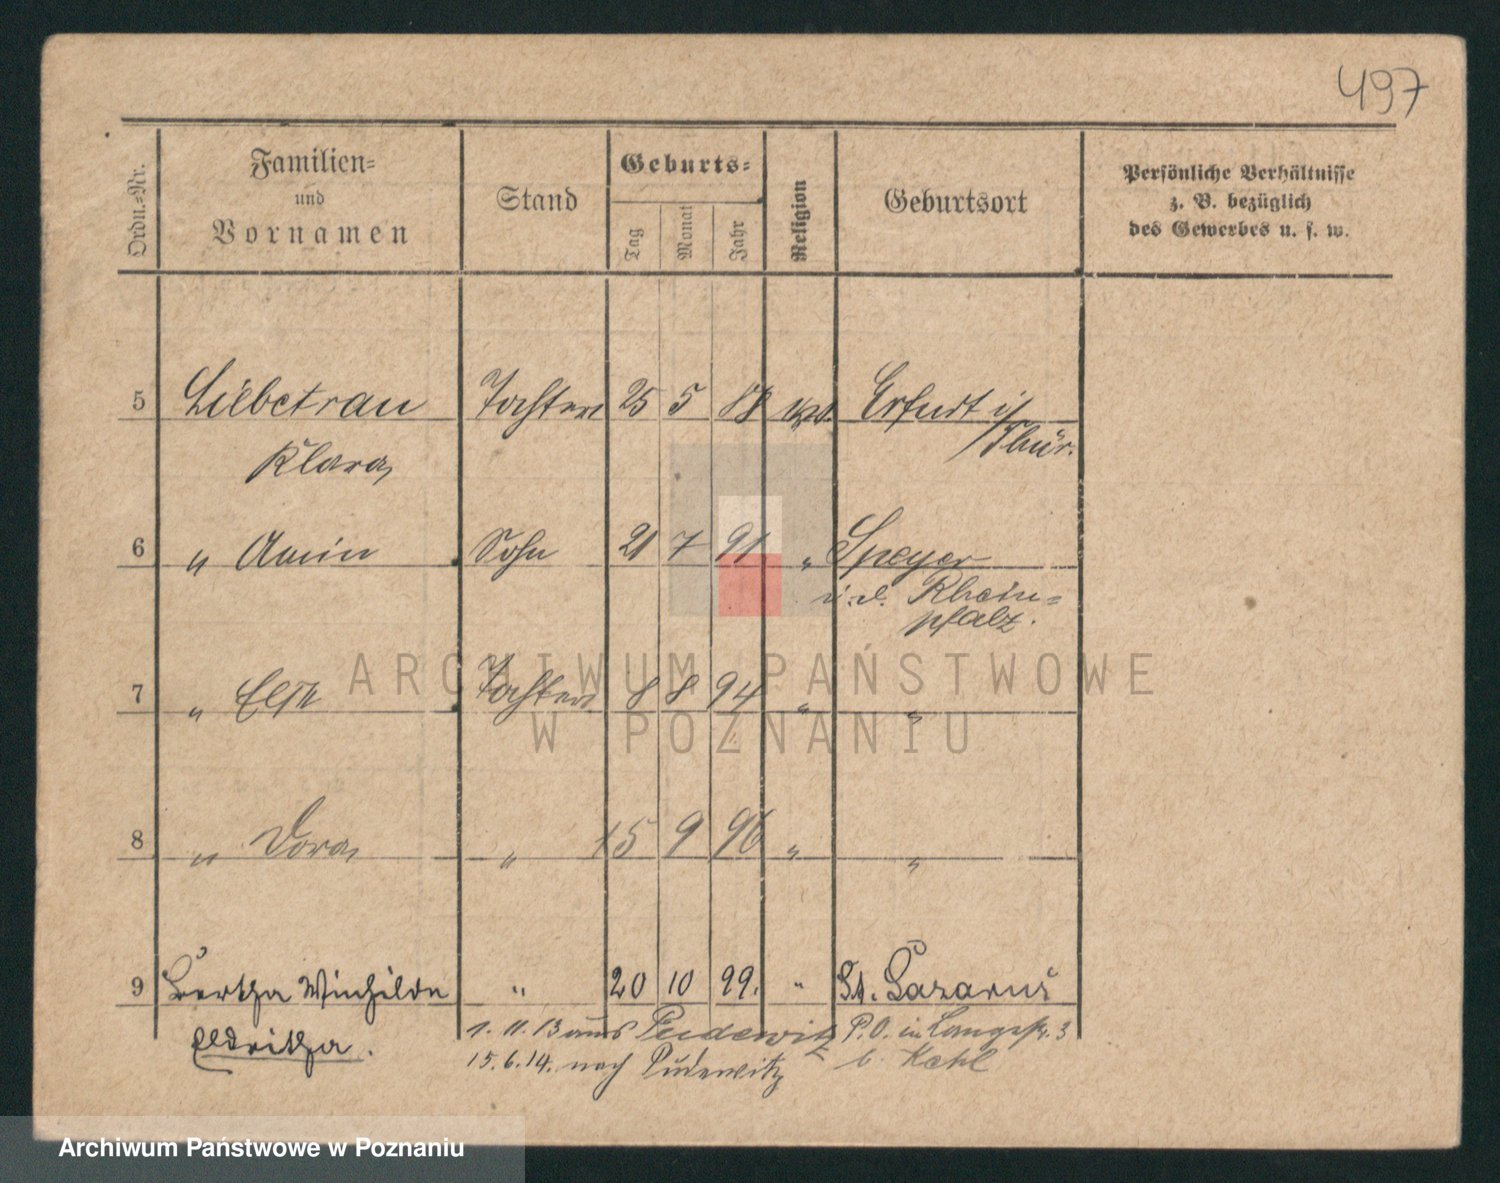 497
Ordn.-Nr.
Familien-
und
Vornamen
Stand
Geburts-
Tag
Monat
Jahr
Religion
Geburtsort
Persönliche Verhältnisse
z. B. bezüglich
des Gewerbes u. s. w.
5 Liebetrau Tochter 25 5 88 Erfurt i/
Klara Thür.
6 " Sohn 21 7 91 " Speyer
i. d. Rhein-
pfalz.
7 " Else Tochter 8 8 94 " "
ARCHIWUM PAŃSTWOWE
W POZNANIU
8 " Dora " 15 9 96 " "
9 Bertha Winhilde " 20 10 99. " St. Lazarus
Eldritha.
1. 11. 13 aus Pudewitz P.O. in Langestr. 3
15. 6. 14. nach Pudewitz b. Kahl
Archiwum Państwowe w Poznaniu